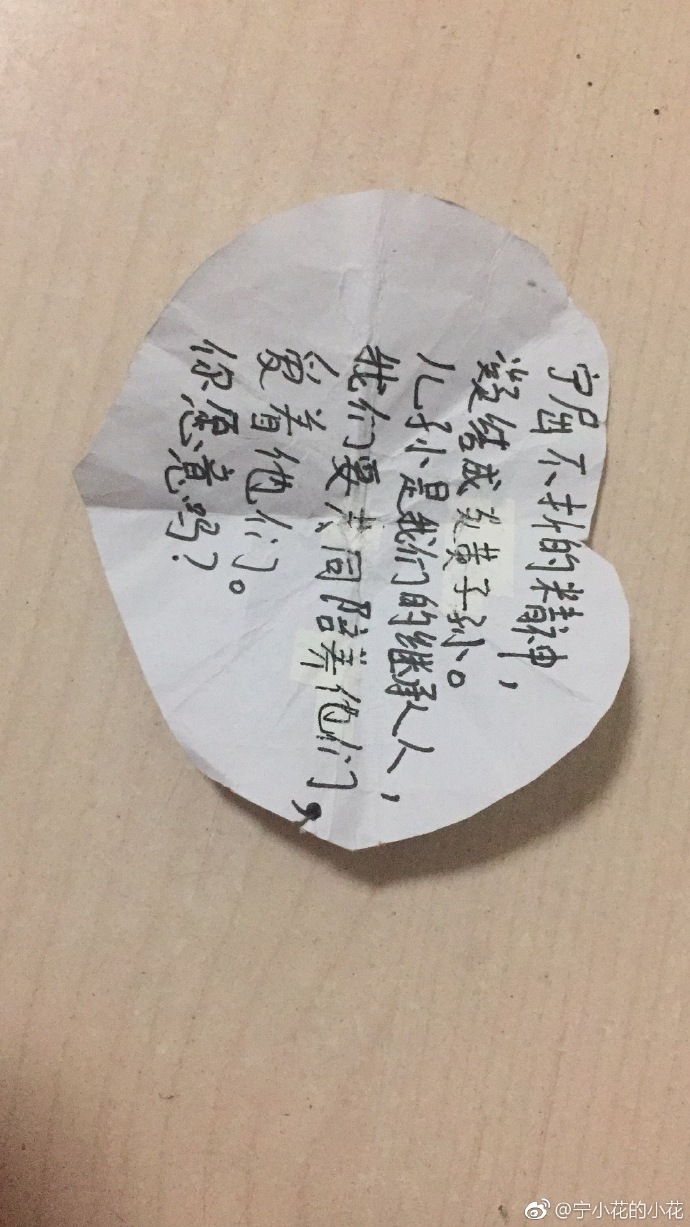 宁屈不扑的精神，
凝结成炎黄子孙。
儿孙是我们的继承人，
我们要共同陪养他们，
爱着他们。
你愿意吗？
@宁小花的小花